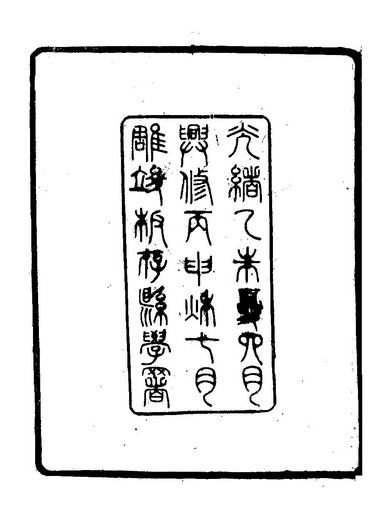 光緒乙未夏四月
興修丙申秋七月
雕竣板存縣學署